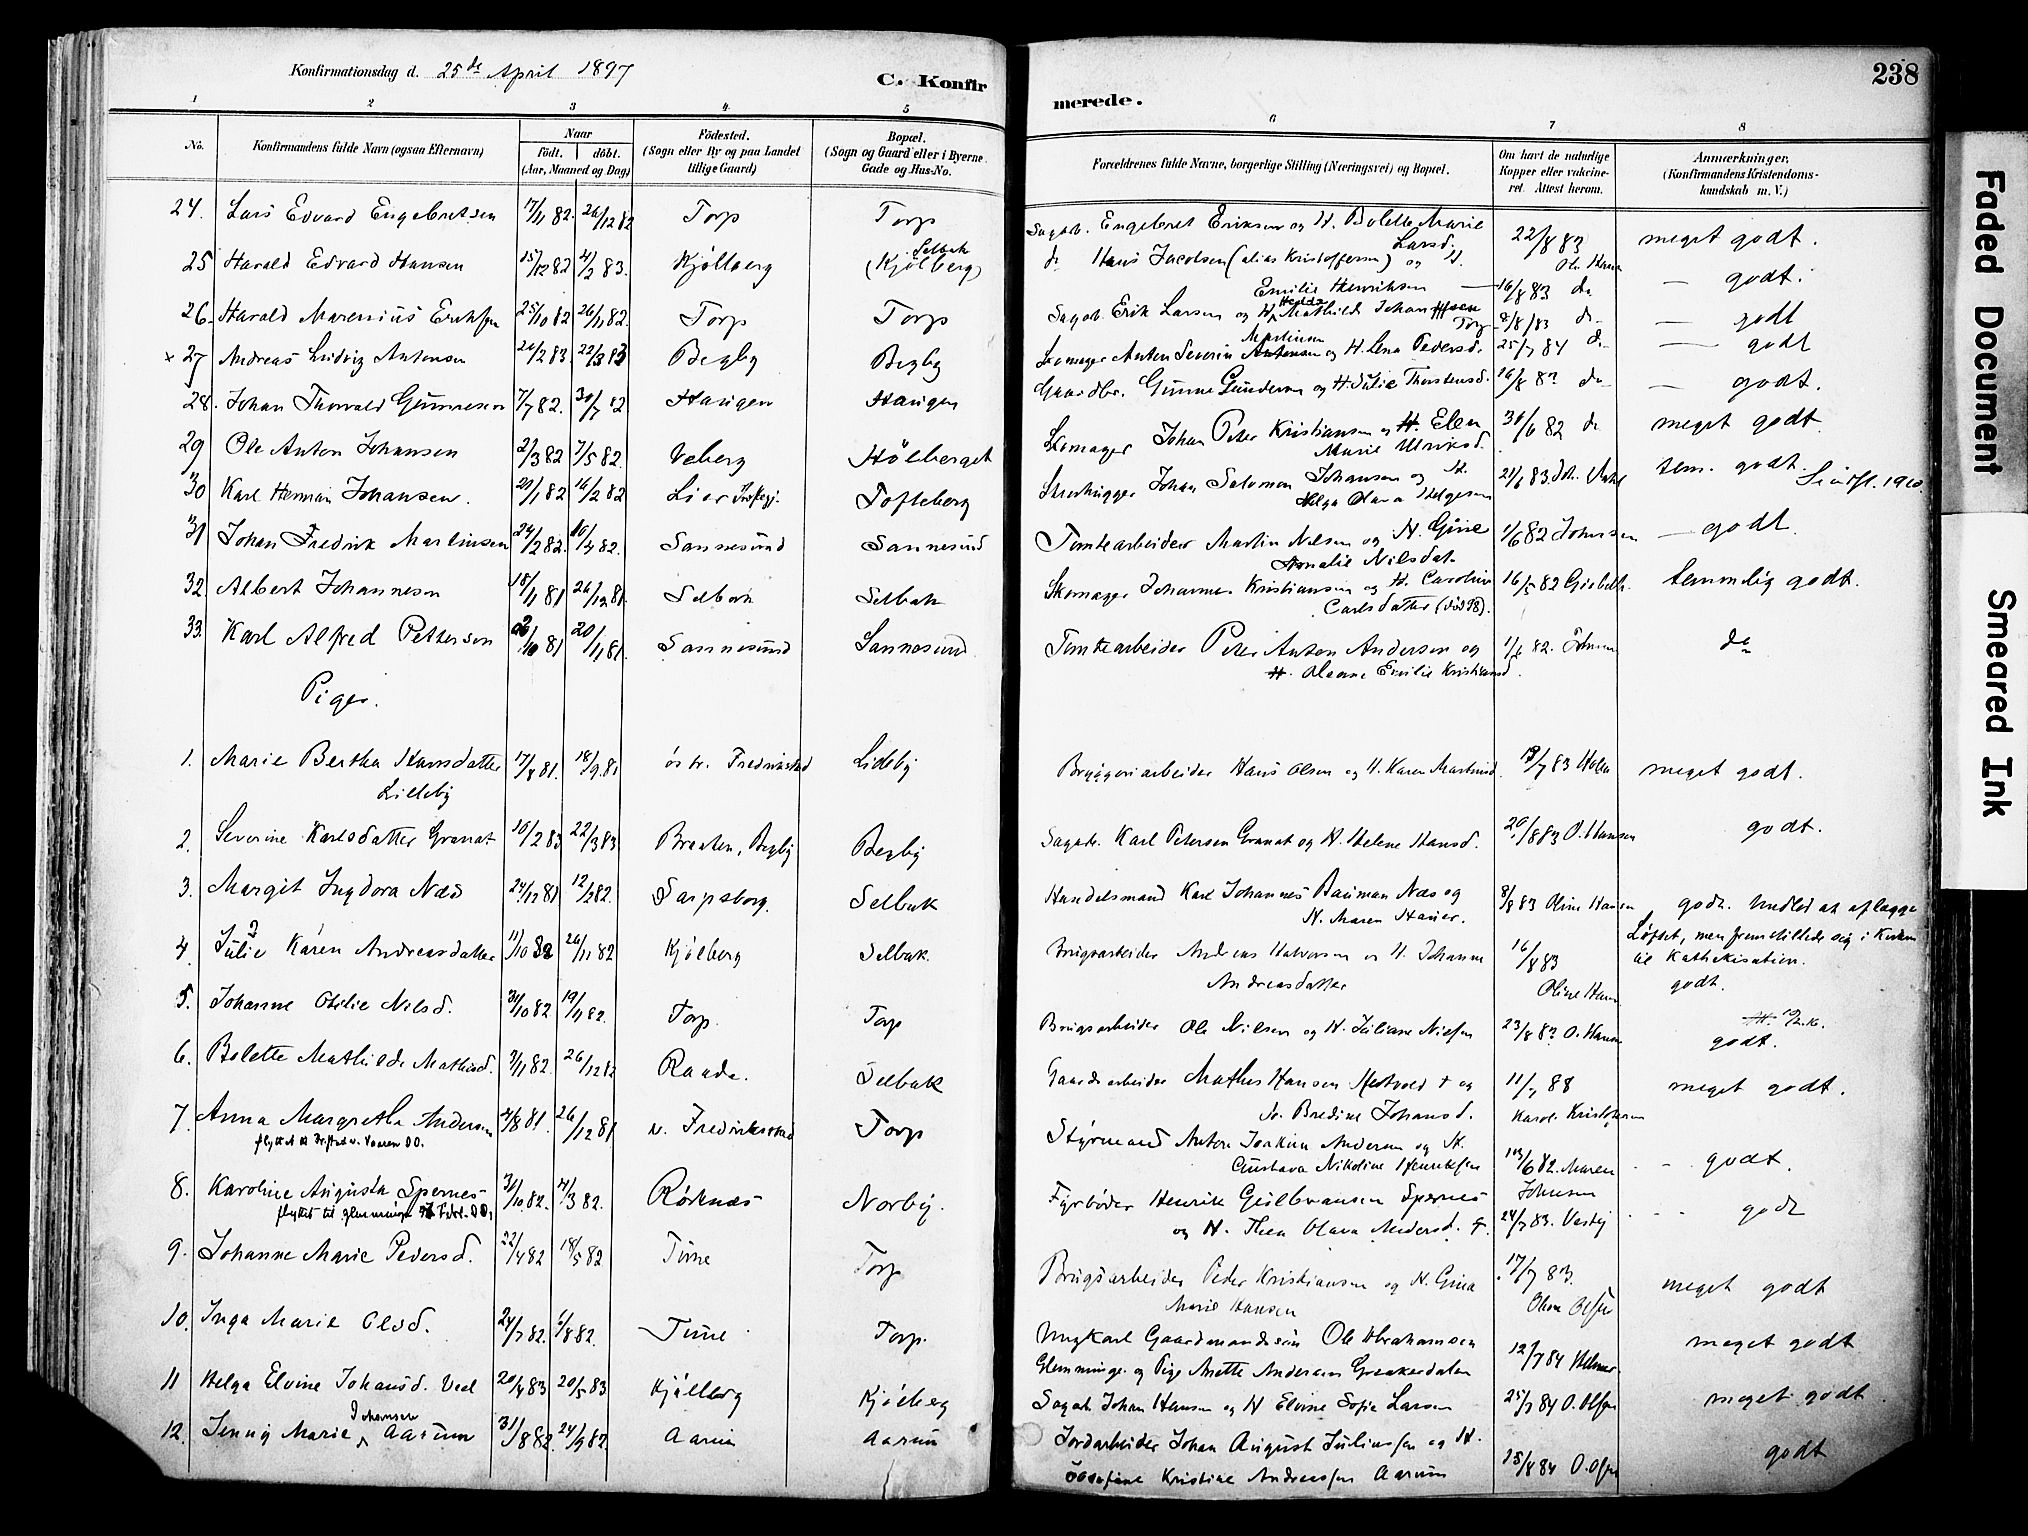 Konfirmationsdag d. 25de April 1897
C. Konfir
merede.
238
1 2 3 4 5 6 7 8
No.
Konfirmandens fulde Navn (ogsaa Efternavn)
Naar
födt. döbt.
(Aar, Maaned og Dag)
Födested.
(Sogn eller By og paa Landet
tillige Gaard)
Bopæl.
(Sogn og Gaard eller i Byerne
Gade og Hus-No.
Forældrenes fulde Navne, borgerlige Stilling (Næringsvei) og Bopæl.
Om havt de naturlige
Kopper eller vakcine-
ret. Attest herom.
Anmærkninger,
(Konfirmandens Kristendoms-
kundskab m. V.)
24. Lars Edvard Engebretsen 17/11 82. 26/12 82 Torp Torp Sagarb. Engebret Eriksen og H. Bolette Marie Larsd. 22/8 83 meget godt.
25 Harald Edvard Hansen 15/12 82 4/2 83. Kjölberg Selbak (Kjølberg) do Hans Jacobsen (alias Kristoffersen) og H. Emilie Henriksen 16/8 83 do — godt.
26. Harald Marenius Eriksen 25/10 82 26/11 82. Torp Torp Sagarb. Erik Larsen og H. Hedda Mathilde Johansen Torp /8 83 do — godt
x 27 Andreas Ludvig Antonsen 2/83. 83 Begby Begby Skomager Anton Severin Martinsen og H. Lena Pedersd. 25/7 84 do — godt
28. Johan Thorvald Gunnesen 7/7 82. 30/7 82 Haugen Haugen Gaardbr. Gunne Gundersen og H. Julie Thorstensd. 16/8 83 do — godt.
29 Ole Anton Johansen 22/3 82 7/5 82. Veberg Hölberget Skomager Johan Peter Kristiansen og H. Elen Marie Ulriksd. 30/6 82 do meget godt.
30 Karl Herman Johansen. 20/1 82 16/2 82 Lier Tofteberg Stenhugger Johan Salomon Johansen og H. Helga Olava Helgesen 21/6 83. tem. godt.
31 Johan Fredrik Martinsen 24/2 82. 10/4 82. Sannesund Sannesund Tomtearbeider Martin Nilsen og H. Gine Amalie Nilsdat. 1/6 82 Johnsen — godt.
32. Albert Johannesen 18/11 81 26/12 81. Selbak Selbak Skomager Johannes Kristiansen og H. Caroline Carlsdatter (död 98). 16/5 82 temmelig godt.
33. Karl Alfred Pettersen /10 81 20/11 81. Sannesund Sannesund Tomtearbeider Peter Anton Andersen og H. Oleane Emilie Kristiansd. 1/6 82. Johnsen do
Piger.
1. Marie Bertha Hansdatter Lilleby 17/8 81. 18/9 81 ös tr. Fredrikstad Lideby Bryggeriarbeider Hans Olsen og H. Karen Martinsd. /7 83 Holm meget godt.
2. Severine Karlsdatter Granat 16/2 83 22/3 83 Braaten, Begby Begby Sagarb. Karl Petersen Granat og H. Helene Hansd. 20/8 83 O. Hansen godt.
3. Margit Ingdora Næs 24/12 81 12/2 82. Sarpsborg. Selbak Handelsmand Karl Johannes Bauman Næs og H. Maren Hauer. 8/8 83 Oline Hansen godt. Undlod at aflægge Løftet, men fremstillede sig i Kirken til Kathekisation.
4. Julie Karen Andreasdatter 11/10 82 26/11 82 Kjölberg Selbak. Brugsarbeider Andreas Halvorsen og H. Johanne Andreasdatter 16/8 83 Oline Hansen godt.
5. Johanne Otilie Nilsd. 31/10 82 19/11 82. Torp. Torp Brugsarbeider Ole Nilsen og H. Juliane Nielsen 23/8 83 O. Hansen godt.
6. Bolette Mathilde Mathisd. 7/11 82. 26/12 82 Raade. Selbak Gaardsarbeider Mathis Hansen Hestvold † og H. Bredine Johansd. 11/7 88 Karol. Kristofersen meget godt.
7. Anna Margretha Andersen 4/8 81. 26/12 81 v. Fredrikstad Torp Styrmand Anton Joakim Andersen og H. Gustava Nikoline Henriksen /6 82. Maren Johnsen - - godt.
8. Karoline Augusta Spernes 31/10 82. 4/3 82. Rörknæs Norby. Fyrbøder Henrik Guldbrandsen Spernes og H. Thea Olava Andersd. 24/7 83. Vestby - - godt
9. Johanne Marie Pedersd. 22/4 82 18/5 82 Tune Torp Brugsarbeider Peder Kristiansen og H. Gina Marie Hansen 17/7 83. Olsen meget godt
10. Inga Marie Olsd. 24/7 82. 6/8 82. Tune Torp. Ungkarl Gaardmandssön Ole Abrahamsen Glemminge og Pige Anette Andersen Greakerdalen 12/7 84 meget godt
11 Helga Elvine Johansd. Ved 20/4 83 20/5 83 Kjölberg Kjölberg Sagarb. Johan Hansen og H Elvine Sofie Larsen 25/7 84 O. Olsen meget godt
12. Jenny Marie Johansen Aarum 31/8 82. 24/9 82. Aarum Aarum Jordarbeider Johan August Juliussen og H. Josefine Kristine Andreassen Aarum 15/8 84 O. Olsen godt
Faded Document
Smeared Ink